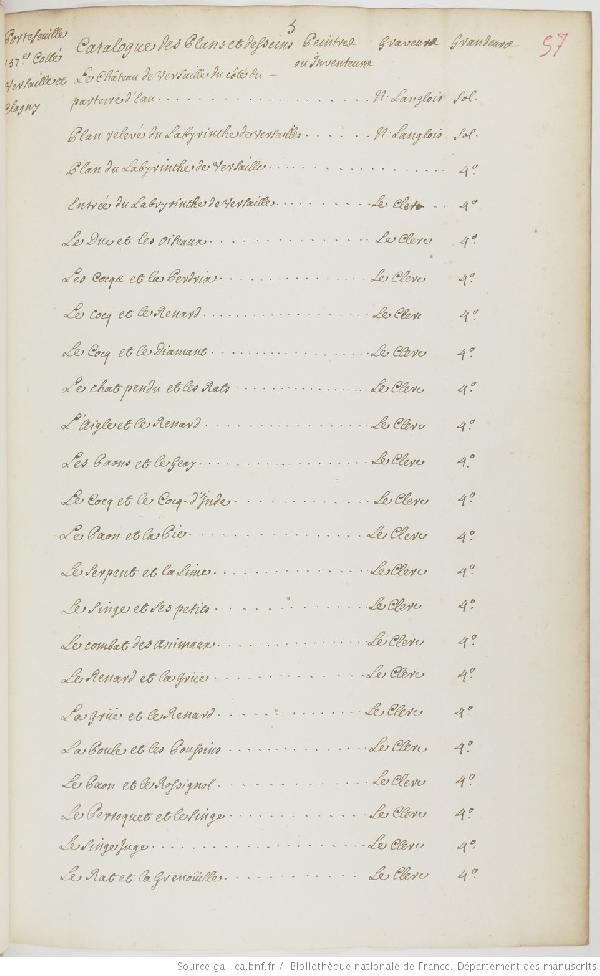 5
57
Portefeuille
137e Collé
Versaille et
Clagny
Catalogue des Plans et desseins Peintres Graveurs Grandeurs
ou Inventeurs
Le Château de Versaille du côté du
parterre d'Eau N. Langlois fol.
Plan relevé du Labyrinthe de Versailles N. Langlois fol.
Plan du Labyrinthe de Versaille 4°
Entrée du Labyrinthe de Versaille Le Clerc 4°
Le Duc et les Oiseaux Le Clerc 4°
Les Cocqs et la Perdrix Le Clerc 4°
Le Cocq et le Renard Le Clerc 4°
Le Cocq et le Diamant Le Clerc 4°
Le chat pendu et les Rats Le Clerc 4°
L'Aigle et le Renard Le Clerc 4°
Les Paons et le Geay Le Clerc 4°
Le Cocq et le Cocq d'Inde Le Clerc 4°
Le Paon et la Pie Le Clerc 4°
Le Serpent et la Lime Le Clerc 4°
Le Singe et ses petits Le Clerc 4°
Le combat des Animaux Le Clerc 4°
Le Renard et la grüe Le Clerc 4°
La grüe et le Renard Le Clerc 4°
La Poule et les Poussins Le Clerc 4°
Le Paon et le Rossignol Le Clerc 4°
Le Perroquet et le Singe Le Clerc 4°
Le Singe Juge Le Clerc 4°
Le Rat et la Grenoüille Le Clerc 4°
Source gallica.bnf.fr / Bibliothèque nationale de France. Département des manuscrits